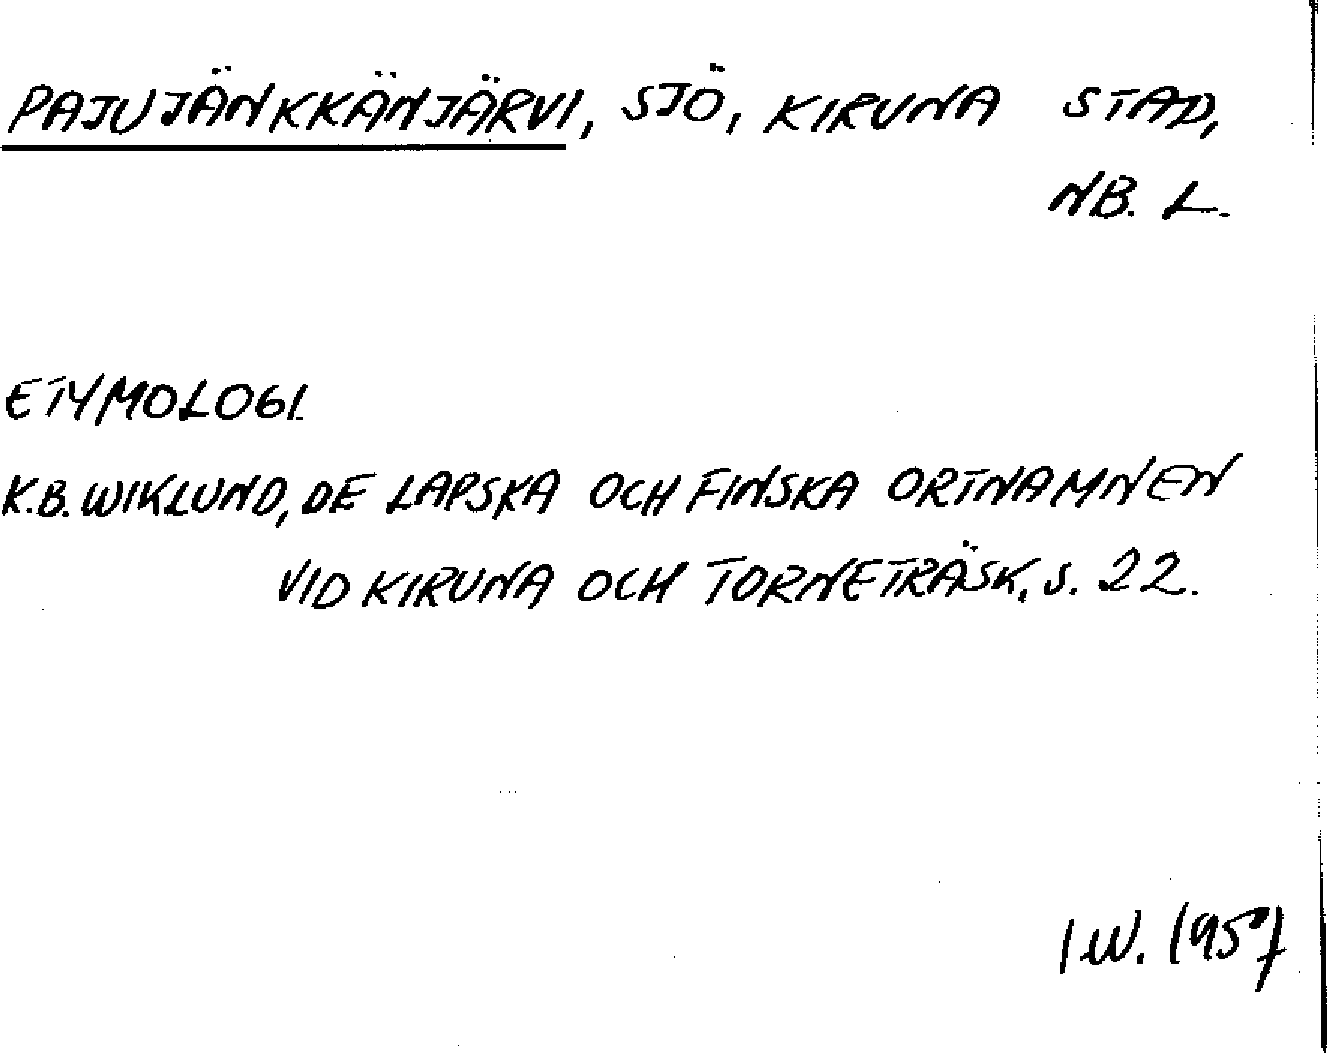 PAJUJÄNKKÄNJÄRVI, SJÖ, KIRUNA STAD,
NB. L.
ETYMOLOGI.
K.B. WIKLUND, DE LAPSKA OCH FINSKA ORTNAMNEN
VID KIRUNA OCH TORNETRÄSK, S. 22.
I W. 1957